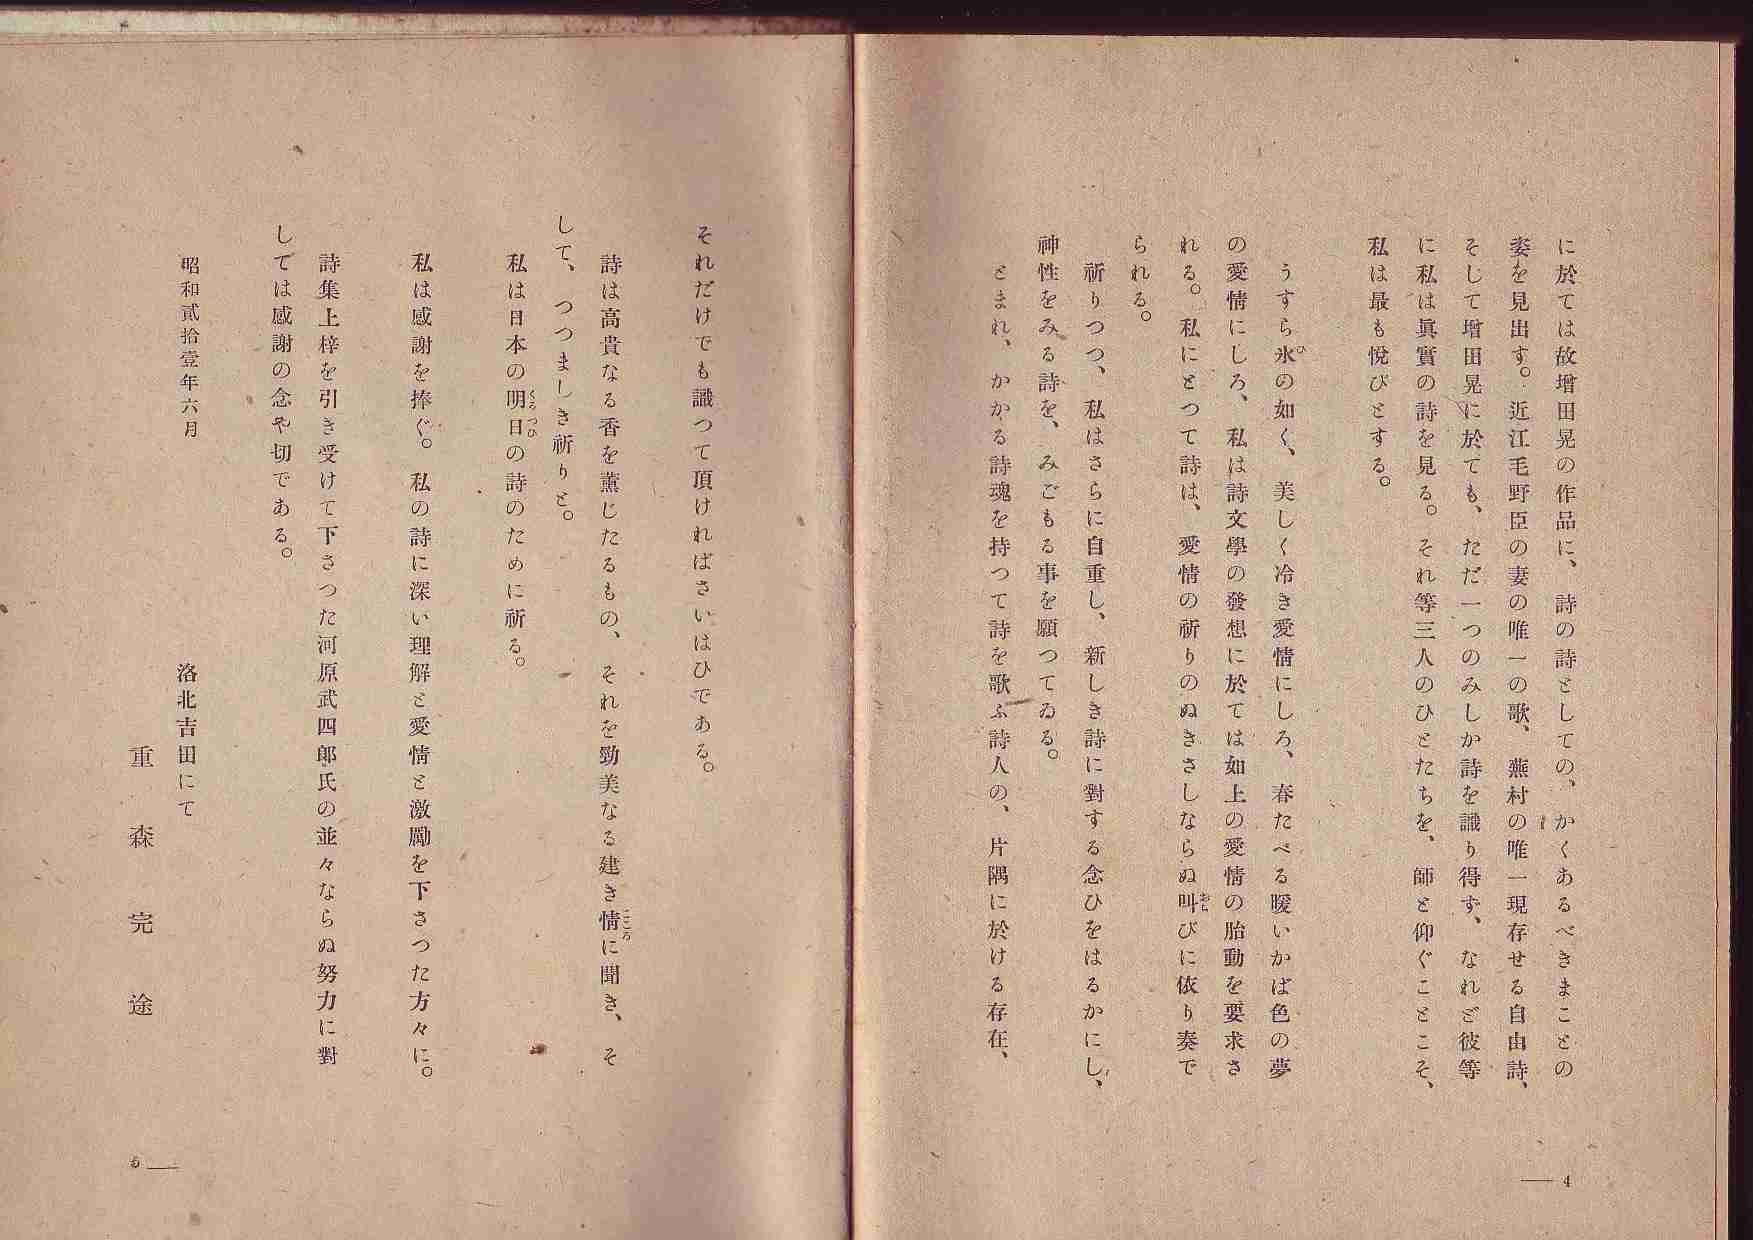 に於ては故增田晃の作品に、詩の詩としての、かくあるべきまことの
姿を見出す。近江毛野臣の妻の唯一の歌、蕪村の唯一現存せる自由詩、
そして增田晃に於ても、ただ一つのみしか詩を識り得ず、なれど彼等
に私は眞實の詩を見る。それ等三人のひとたちを、師と仰ぐことこそ、
私は最も悅びとする。
うすら氷の如く、美しく冷き愛情にしろ、春たべる暖いかば色の夢
ひ
の愛情にしろ、私は詩文學の發想に於ては如上の愛情の胎動を要求さ
れる。私にとつて詩は、愛情の祈りのぬきさしならぬ叫びに依り奏で
られる。
祈りつつ、私はさらに自重し、新しき詩に對する念ひをはるかにし、
神性をみる詩を、みごもる事を願つてゐる。
とまれ、かかる詩魂を持つて詩を歌ふ詩人の、片隅に於ける存在、
— 4
それだけでも識つて頂ければさいはひである。
詩は高貴なる香を薫じたるもの、それを勁美なる建き情に聞き、そ
こころ
して、つつましき祈りと。
私は日本の明日の詩のために祈る。
くるつひ
私は感謝を捧ぐ。私の詩に深い理解と愛情と激勵を下さつた方々に。
詩集上梓を引き受けて下さつた河原武四郞氏の並々ならぬ努力に對
しては感謝の念や切である。
昭和貳拾壹年六月
洛北吉田にて
重森完途